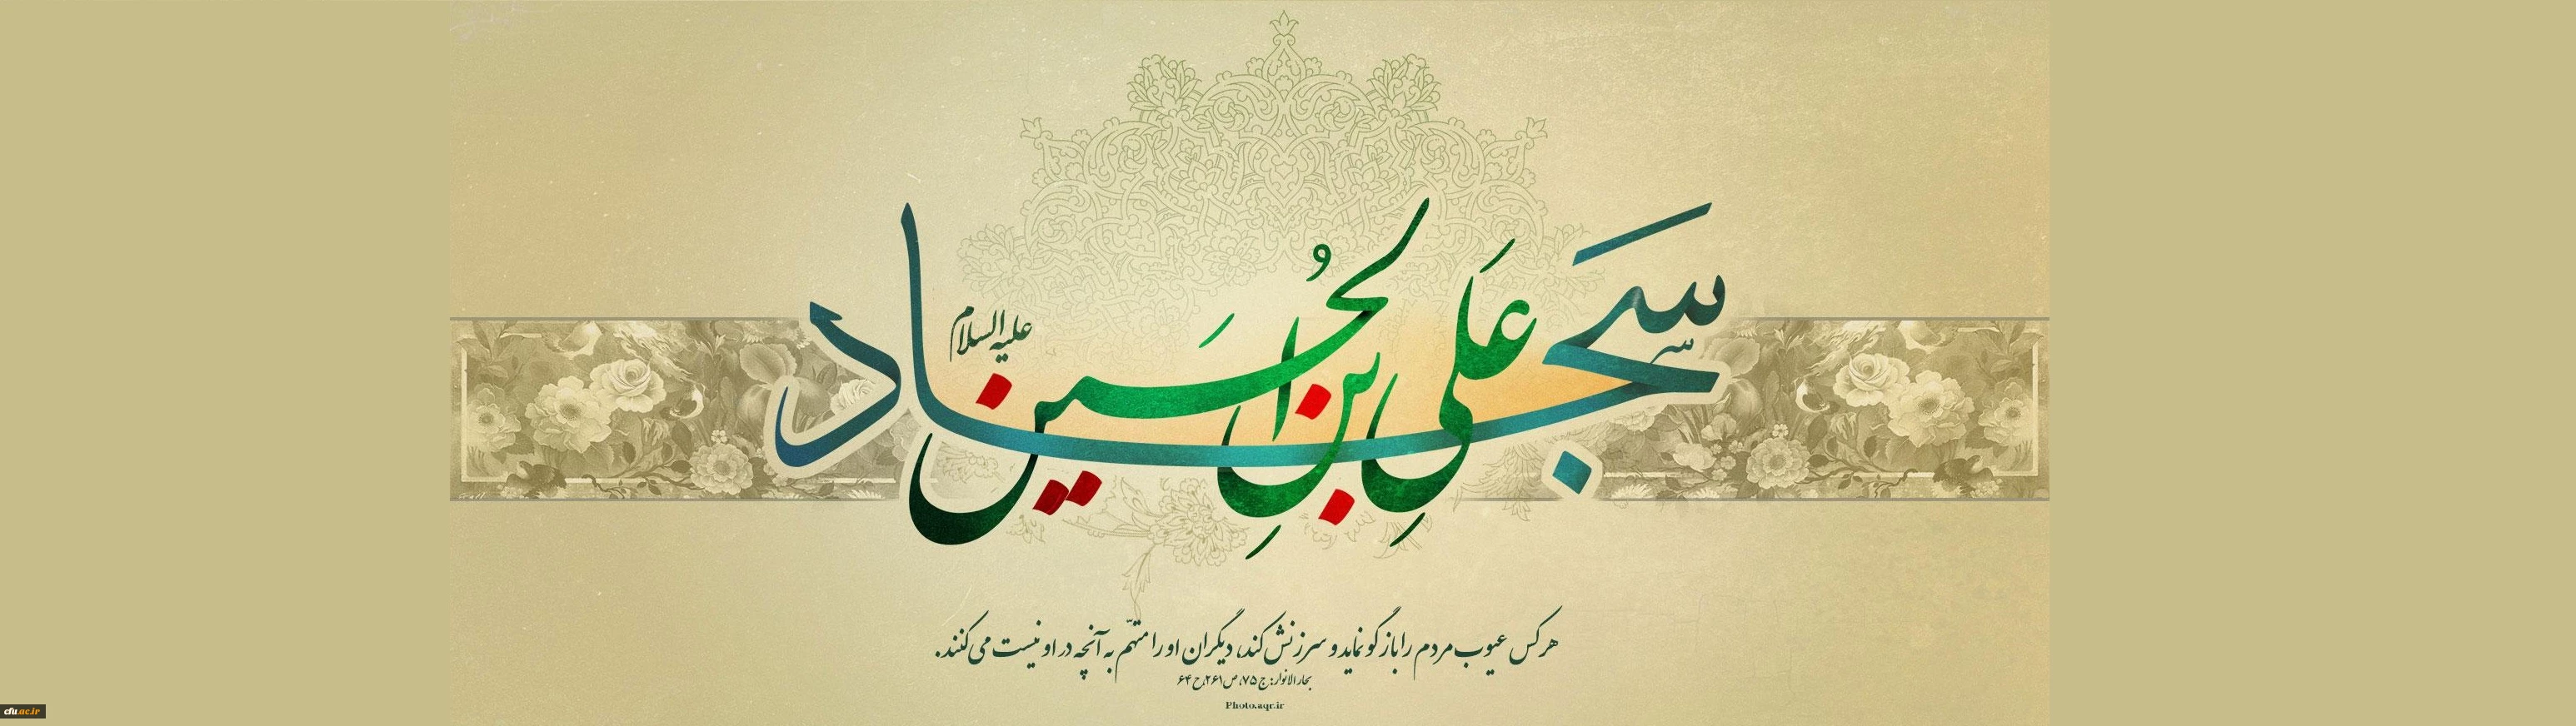 سجاد
علی بن الحسین
علیه السلام
هر کس عیوب مردم را بازگو نماید و سرزنش کند، دیگران او را متهّم به آنچه در او نیست می‌کنند.
بحار الانوار: ج ۷۵، ص۲۶۱، ح ۶۴
Photo.aqr.ir
cfu.ac.ir